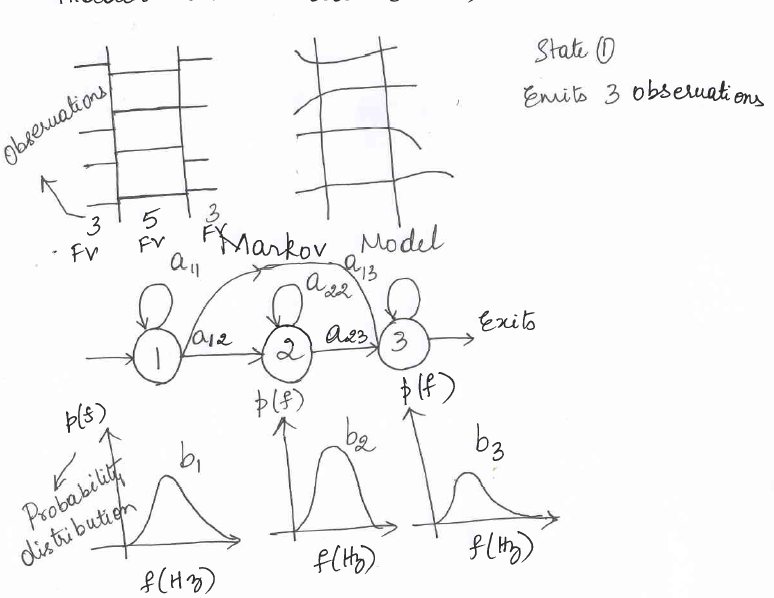 State ①
Emits 3 observations
Observations
3 5 3
FV FV FV
Markov Model
a11 a13
a22
a12 a23
1 2 3 Exits
p(f) p(f) p(f)
b1 b2 b3
Probability
distribution
f(Hz) f(Hz) f(Hz)